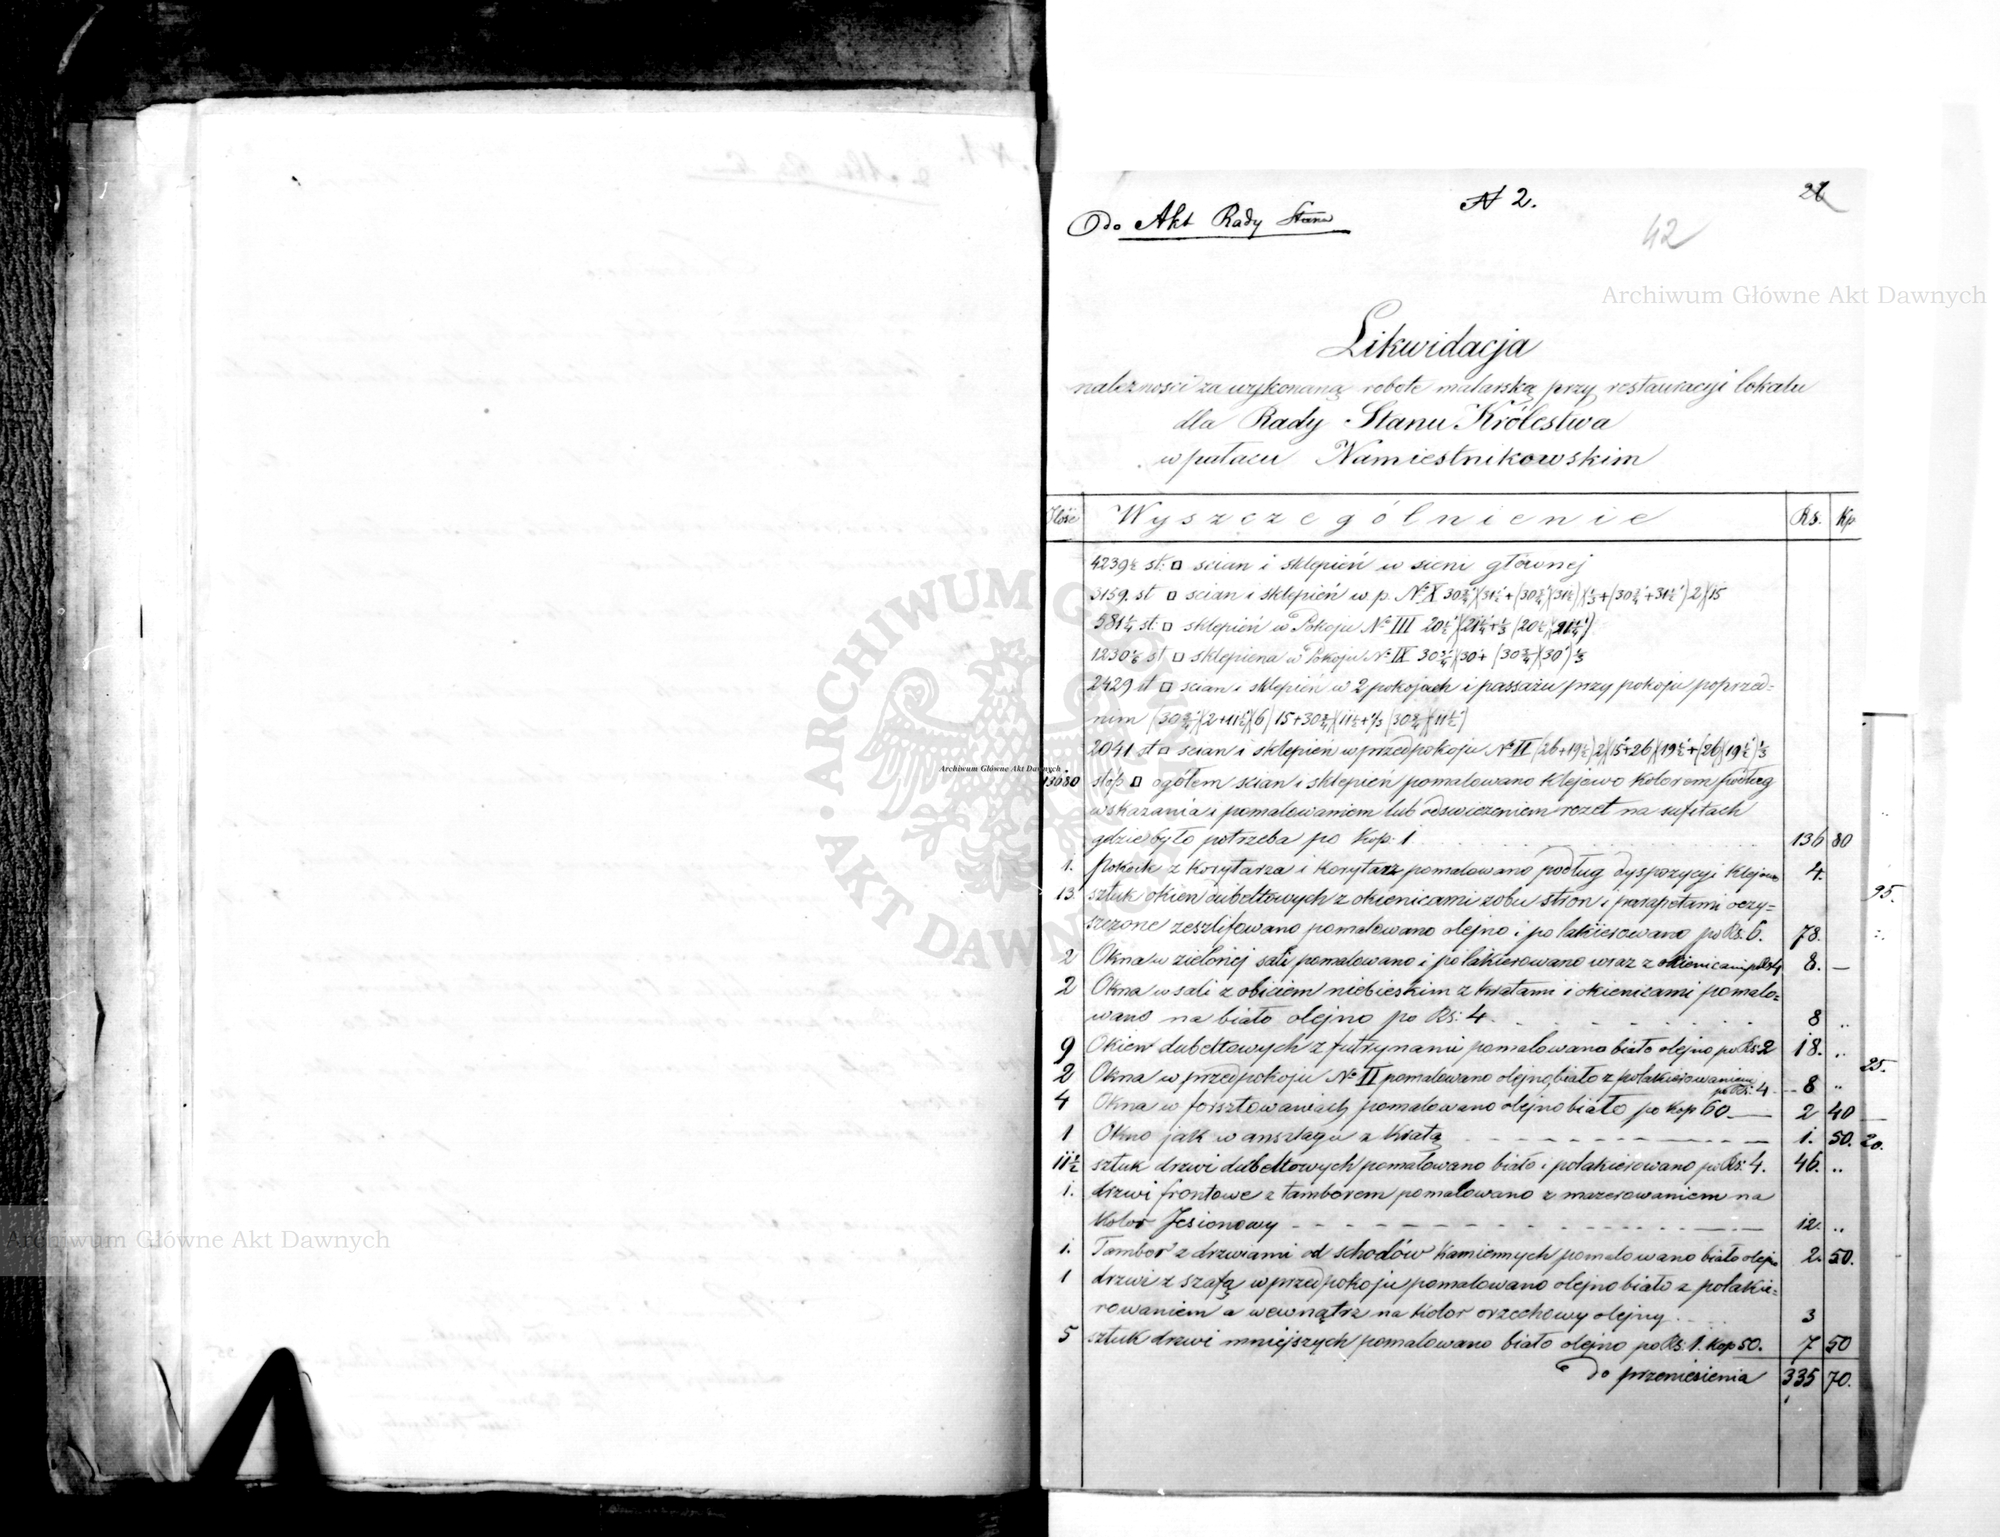 Do Akt Rady Stanu
N 2.
42
Archiwum Główne Akt Dawnych
Likwidacja
należności za wykonaną robotę malarską przy restauracyi lokalu
dla Rady Stanu Królestwa
w pałacu Namiestnikowskim
Ilość Wyszczególnienie Rs. Kp.
4239½ st: □ scian i sklepień w sieni głównej
3159. st □ scian i sklepień w p. No X
581¼ st: □ sklepień w Pokoju No III
1230 st □ sklepienia w Pokoju No IX
2429 st □ scian i sklepień w 2 pokojach i passażu przy pokoju poprzed=
nim
2041 st □ scian i sklepień w przedpokoju No II
13680 stóp □ ogółem scian i sklepień pomalowano klejowo kolorem podług
wskazania i pomalowaniem lub odswieżeniem rozet na sufitach
gdzie było potrzeba po Kop: 1 136 80
1. Pokoik z korytarza i korytarz pomalowano podług dyspozycyi klejowo 4.
13. sztuk okien dubeltowych z okienicami z obu stron i parapetami oczy=
szczone zeszlifowano pomalowano olejno i polakierowano po Rs. 6. 78.
2 Okna w zielonej sali pomalowano i polakierowano wraz z okienicami po Rs 4 8. —
2 Okna w sali z obiciem niebieskim z kratami i okienicami pomalo=
wano na biało olejno po Rs: 4 8 ..
9 Okien dubeltowych z futrynami pomalowano biało olejno po Rs: 2 18. ..
2 Okna w przedpokoju No II pomalowano olejno biało z polakierowaniem
po Rs: 4 8 ..
4 Okna w forsztowaniach pomalowano olejno biało po kop 60 2 40
1 Okno jak w anszlagu z kratą 1. 50.
11½ sztuk drzwi dubeltowych pomalowano biało i polakierowano po Rs: 4. 46. ..
1. drzwi frontowe z tamborem pomalowano z mazerowaniem na
kolor Jesionowy 12. ..
1. Tambor z drzwiami od schodów kamiennych pomalowano biało olejno 2. 50.
1 drzwi z szafą w przedpokoju pomalowano olejno biało z polakie=
rowaniem a wewnątrz na kolor orzechowy olejny 3
5 sztuk drzwi mniejszych pomalowano biało olejno po Rs: 1. kop 50. 7 50
do przeniesienia 335 70.
95.
25.
20.
Archiwum Główne Akt Dawnych
ARCHIWUM GŁÓWNE AKT DAWNYCH
Archiwum Główne Akt Dawnych